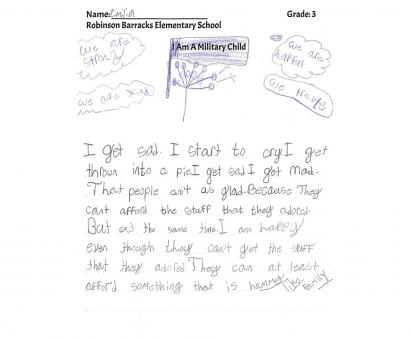 Name: Emilia Grade: 3
Robinson Barracks Elementary School
I Am A Military Child
we are strong
we are helpful
we are kind
we
I get sad. I start to cry. I get
thrown into a pie I get sad I get mad.
That people aint as glad. Because They
cant afford the stuff that they adored.
But at the same time. I am happy
even though they can't get the stuff
that they adored. They can at least
afford something that is like family